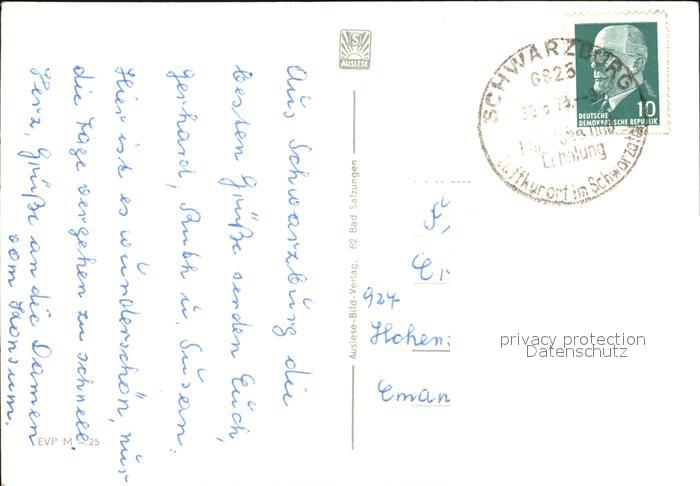 Aus Schwarzburg die
besten Grüße senden Euch,
Gerhard, Ruth u. Susan.
Hier ist es wunderschön, nur
die Tage vergehen zu schnell.
Herz. Grüße an die Damen
vom Konsum.
EVP M -.25
S
AUSLESE
Auslese-Bild-Verlag, 62 Bad Salzungen
SCHWARZBURG
6823
Erholung
Luftkurort im Schwarzatal
10
DEUTSCHE
DEMOKRATISCHE REPUBLIK
924
Hohen
Eman
privacy protection
Datenschutz